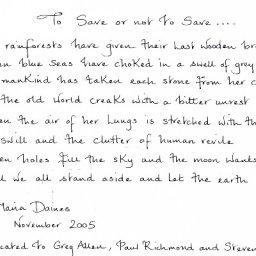 To Save or not to Save ....
rainforests have given their last wooden br
blue Seas have choked in a swell of grey
mankind has taken each stone from her c
the old world creaks with a bitter unrest
the air of her Lungs is stretched with th
swill and the clutter of human revile
holes fill the sky and the moon wants
we all stand aside and let the earth
Daines
November 2005
to Greg Allen, Paul Richmond and Steven